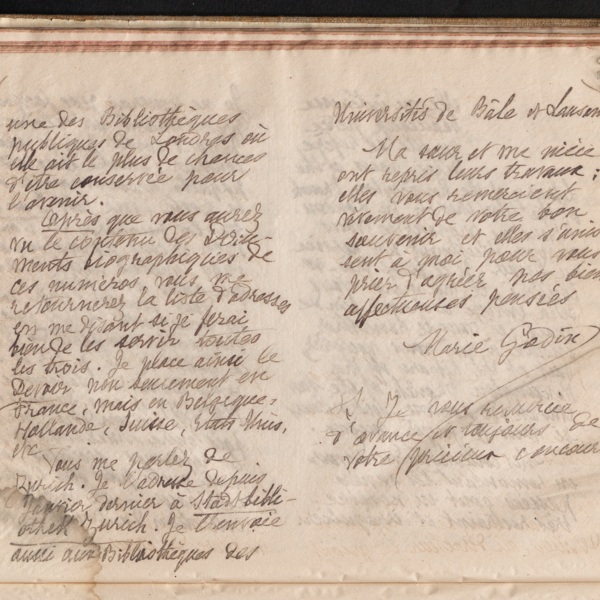 une des Bibliothèques
publiques de Londres où
elle ait le plus de chances
d'être conservée pour
l'avenir.
Après que vous aurez
vu le contenu des docu-
ments biographiques de
ces numéros, vous me
retournerez la liste d'adresses
en me disant si je ferai
bien de les servir toutes
les trois. Je place ainsi le
Devoir non seulement en
France, mais en Belgique,
Hollande, Suisse, Etats Unis,
etc
Vous me parlez de
Zurich. Je l'adresse depuis
Janvier dernier à Stadtbibli-
othek Zurich. Je l'envoie
aussi aux Bibliothèques des
Universités de Bâle et Lausan
Ma sœur et ma nièce
ont repris leurs travaux;
elles vous remercient
vivement de votre bon
souvenir et elles s'unis
sent à moi pour vous
prier d'agréer nos bien
affectueuses pensées
Marie Godin
Je vous remercie
d'avance et toujours de
votre précieux concours